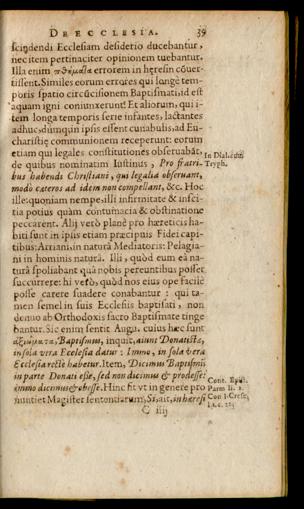 DE ECCLESIA. 39
scindendi Ecclesiam desiderio ducebantur,
nec item pertinaciter opinionem tuebantur.
Illa enim errorem in hęresin cōuer-
tissent. Similes eorum errores qui longè tem-
poris spatio circūcisionem Baptismati, id est
aquam igni coniunxerunt! Et aliorum, qui i-
tem longa temporis serie infantes, lactantes
adhuc, dúmque in ipsis essent cunabulis, ad Eu-
charistię communionem receperunt: eorum
etiam qui legales constitutiones obseruabāt,
de quibus nominatim Iustinus, Pro fratri-
bus habendi Christiani, qui legalia obseruant,
modò cæteros ad idem non compellant, &c. Hoc
ille: quoniam nempe illi infirmitate & insci-
tia potius quàm contumacia & obstinatione
peccarent. Alij verò planè pro hæreticis ha-
biti sunt in ipsis etiam præcipuis Fidei capi-
tibus: Arriani, in naturâ Mediatoris: Pelagia-
ni in hominis naturâ. Illi, quòd eum eâ na-
turâ spoliabant quâ nobis pereuntibus posset
succurrere: hi verò, quòd nos eius ope facilè
posse carere suadere conabantur: qui ta-
men semel in suis Ecclesiis baptisati, non
denuo ab Orthodoxis sacro Baptismate tinge
bantur. Sic enim sentit Aug. cuius hæc sunt
ἀξιώματα, Baptismus, inquit, aiunt Donatistæ,
in sola vera Ecclesia datur: Immo, in sola vera
Ecclesia rectè habetur. Item, Dicimus Baptismũ
in parte Donati esse, sed non dicimus & prodesse:
immo dicimus & obesse. Hinc fit vt in genere pro
nuntiet Magister sententiarum, Si, ait, in hæresi
C iiij
In Dial. cum
Tryph.
Cont. Epist.
Parm li. 2.
Con